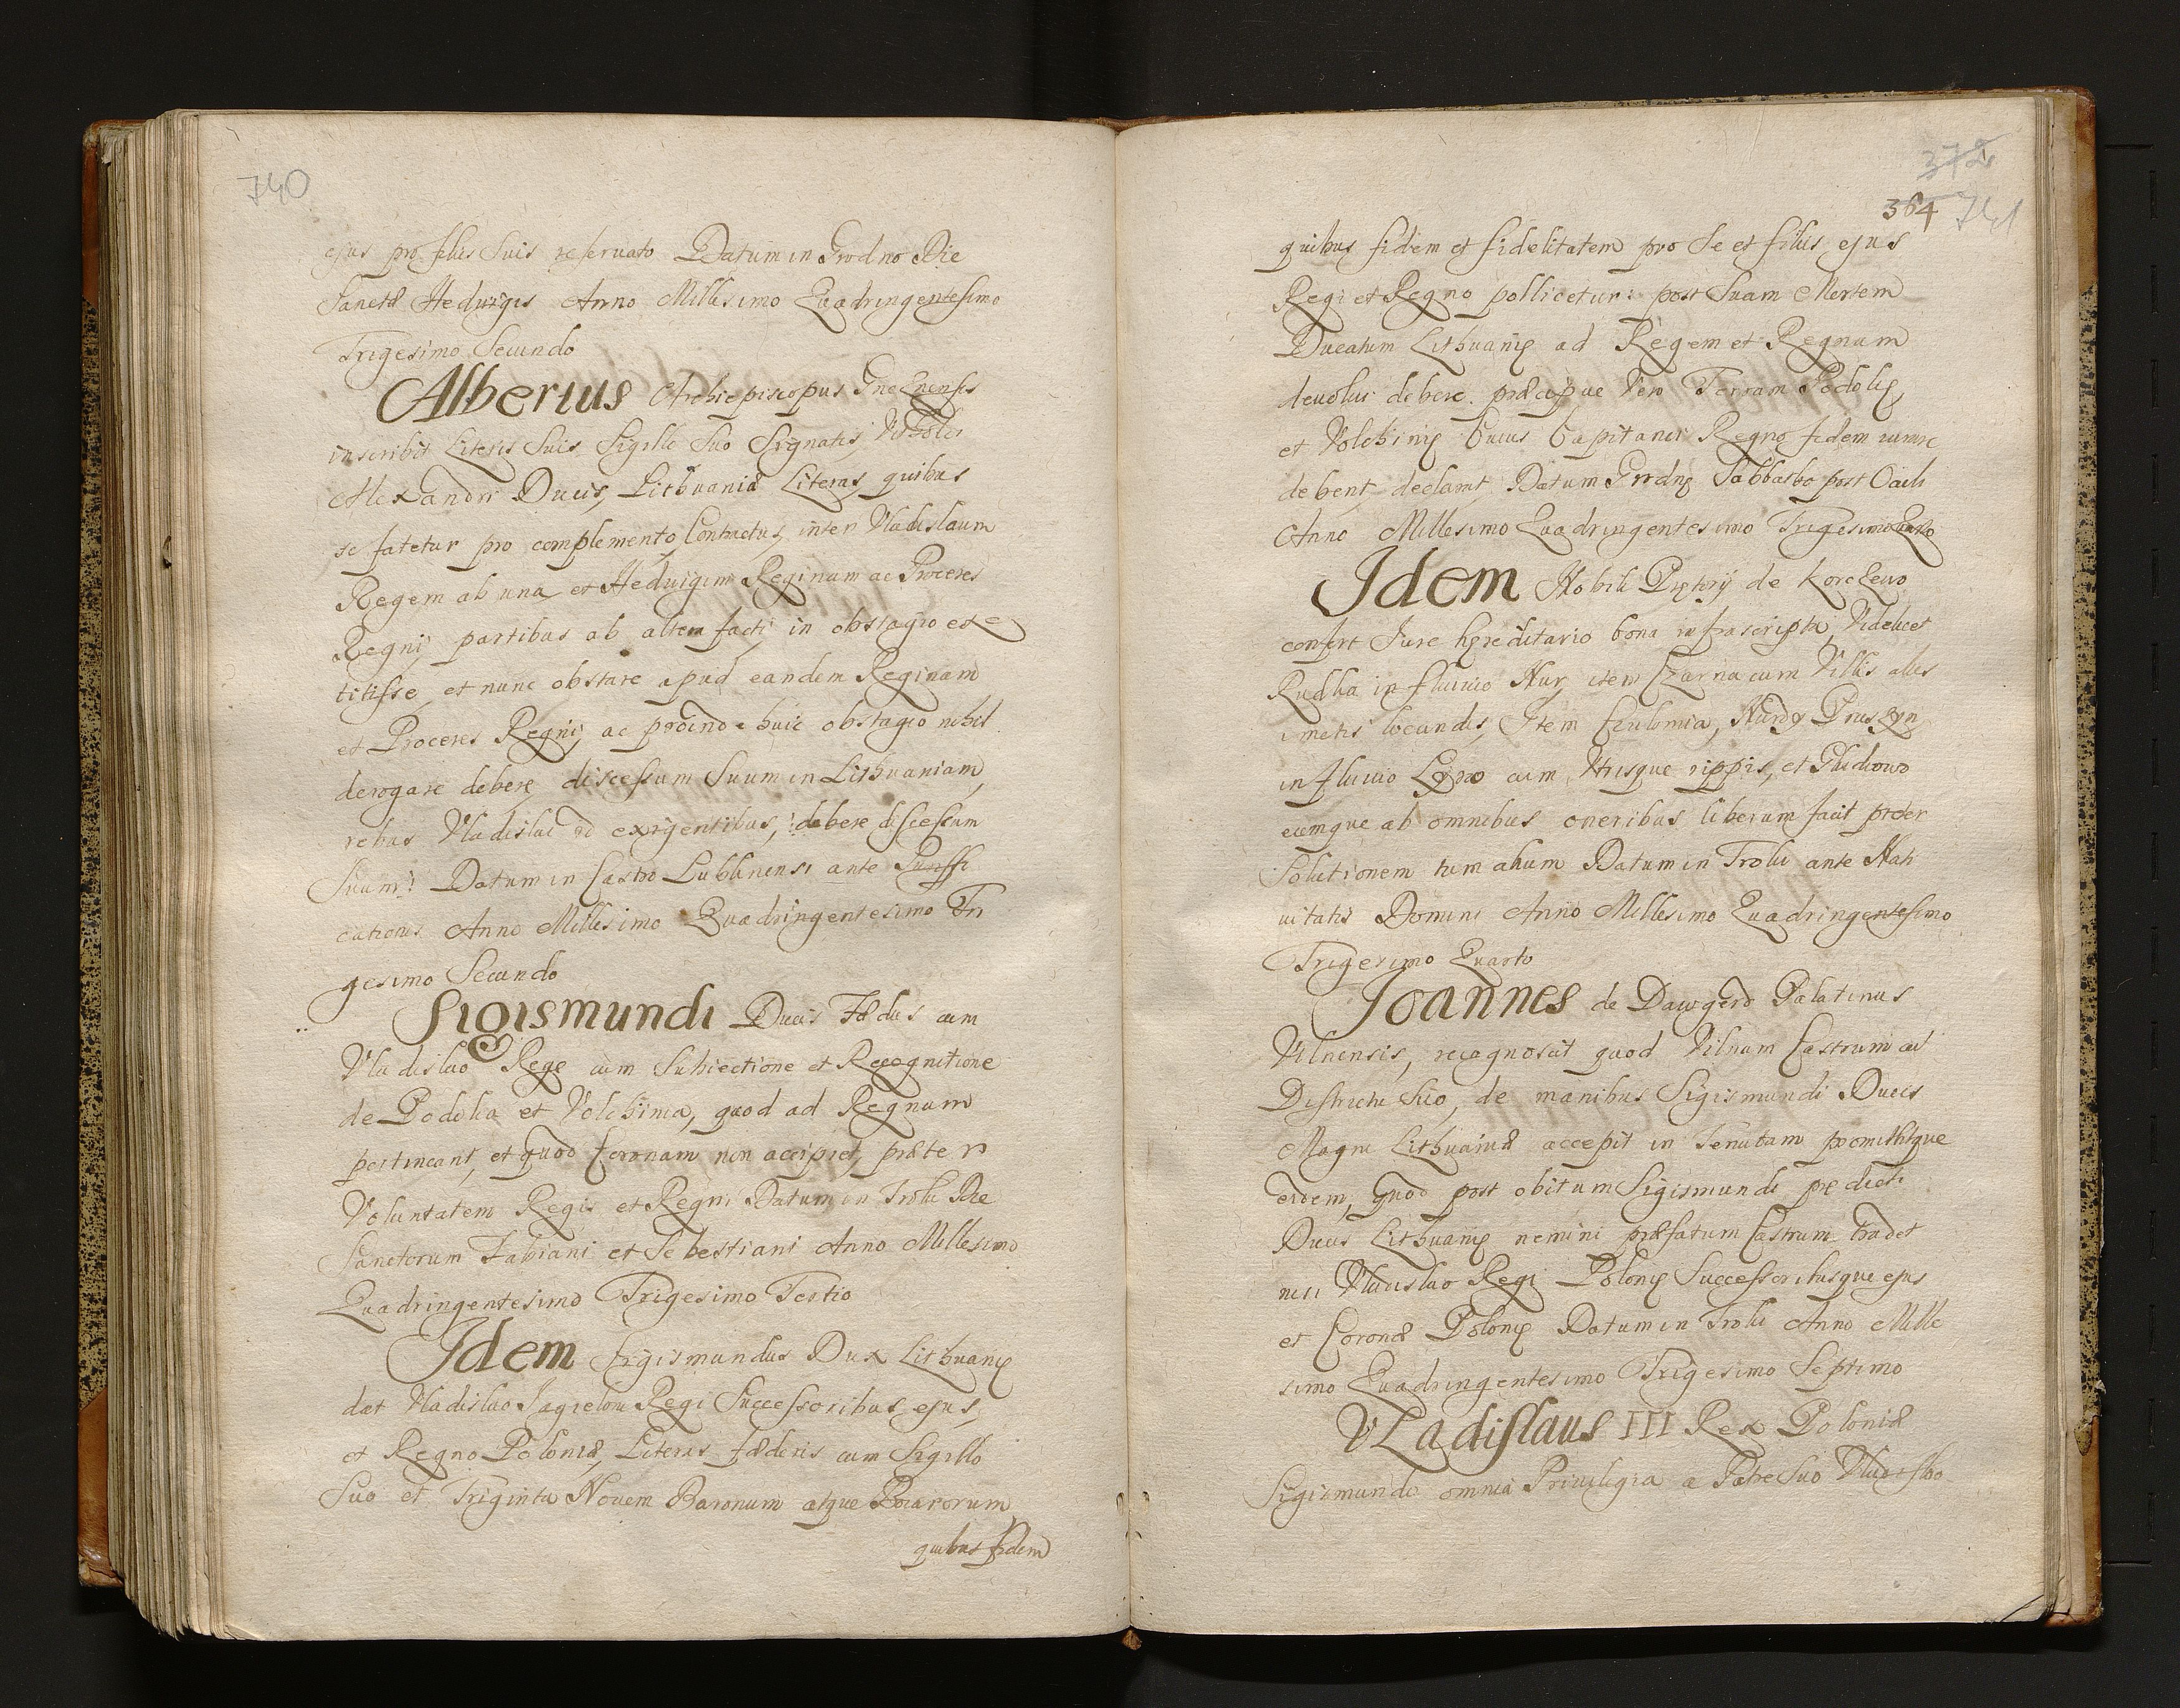 740
ejus pro filiis Suis reservato Datum in Grodno Die
Sanctæ Hedvigis Anno Millesimo Quadringentesimo
Trigesimo Secundo
Albertus Archiepiscopus Gneznensis
inscribit Literis Suis, Sigillo Suo Signatis,
Alexandri Ducis, Lithuaniæ Literas, quibus
se fatetur pro complemento Contractus, inter Vladislaum
Regem ab una et Hedvigim Reginam ac Proceres
Regni, partibus ab altera facti, in obstagio exs
titisse, et nunc obstare apud eandem Reginam
et Proceres Regni, ac proinde huic obstagio nihil
derogare debere, discessum Suum in Lithuaniam,
rebus Vladislai id exigentibus, debere discessum
Suum: Datum in Castro Lublinensi ante Puriffi
cationis Anno Millesimo Quadringentesimo Tri
gesimo Secundo
Sigismundi Ducis Fædus cum
Vladislao Rege cum Subiectione et Recognitione
de Podolia et Volchinia, quod ad Regnum
pertineant, et quod Coronam non accipiet, præter
Voluntatem Regis et Regni Datum in Troki Die
Sanctorum Fabiani et Sebestiani Anno Millesimo
Quadringentesimo Trigesimo Tertio
Idem Sigismundus Dux Lithuanię
dat Vladislao Jagieloni Regi Successoribus ejus,
et Regno Poloniæ, Literas Fæderis cum Sigillo
Suo et Triginta Novem Baronum atque Boiarorum
quibus fidem
372
364 741
quibus fidem et fidelitatem pro Se et filiis ejus
Regi et Regno pollicetur: post Suam Mortem
Ducatum Lithuanię ad Regem et Regnum
devolui debere. præcipue Vero Terram Podolię,
et Volchinię Cuius Capitanei Regno fidem iurare
debent, declarat, Datum Grodnę Sabbatho post Oculi
Anno Millesimo Quadringentesimo Trigesimo Quarto
Idem Nobili Piętrzy de Korczewo
confert Jure hęreditario bona infrascripta, Videlicet
Rudka in fluuio Nur, item Czarna cum Villis aliis
imetis locandis, Item Czulomia, Nurdy Pruszyn
in fluuio cum Utrisque rippis, et
eumque ab omnibus oneribus liberum facit præter
Solutionem tum aliam Datum in Troki ante Nati
uitatis Domini Anno Millesimo Quadringentesimo
Trigesimo Quarto
Joannes de Dawgerd Palatinus
Vilnensis, recognoscit quod Vilnam Castrum cum
Districtu Suo, de manibus Sigismundi Ducis
Magni Lithuaniæ accepit in Tenutam promittitque
eidem, quod post obitum Sigismundi prędicti
Ducis Lithuanię nemini præfatum Castrum tradet
nisi Vladislao Regi Polonię Successoribusque ejus
et Coronæ Polonię Datum in Troki Anno Mille
simo Quadringentesimo Trigesimo Septimo
Vladislaus III Rex Poloniæ
Sigismundo omnia Priuilegia a Patre Suo Vladislao